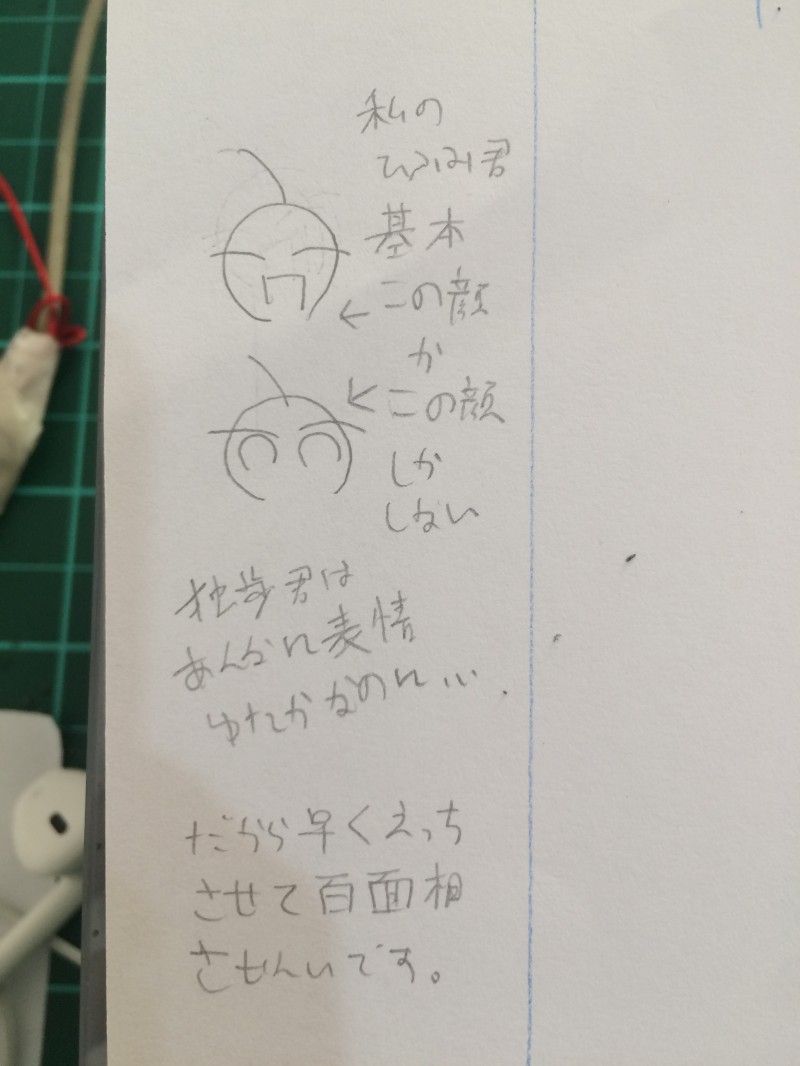 私の
ひふみ君
基本
この顔
か
この顔
しか
しない
独歩君は
あんなに表情
ゆたかなのに…
だから早くえっち
させて百面相
させたいです。